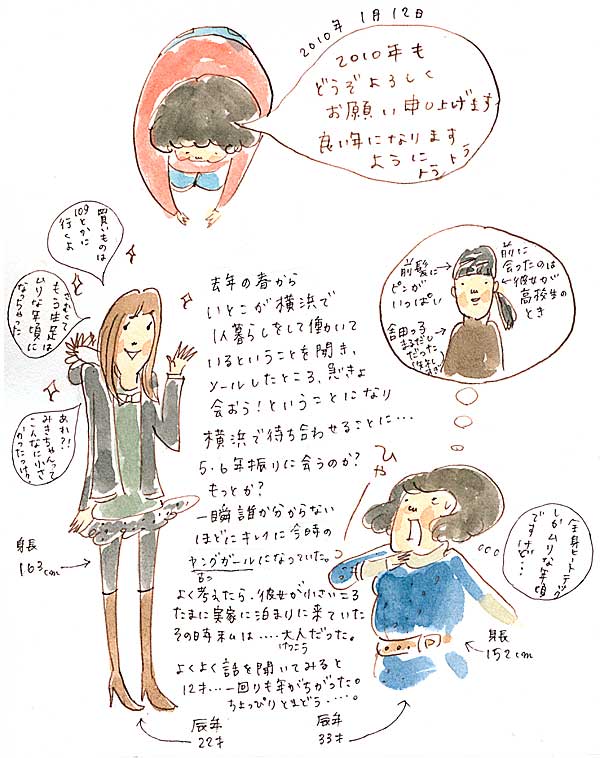 2010年 1月12日
2010年も
どうぞよろしく
お願い申し上げます
良い年になります
ように
トラ トラ
買いものは
109とかに
行くよ
さむくて
もう生足は
ムリな年頃に
なっちゃった
あれ?!
みきちゃんって
こんなに小さ
かったっけ?
身長
163cm
去年の春から
いとこが横浜で
1人暮らしをして働いて
いるということを聞き、
メールしたところ、急きょ
会おう!ということになり
横浜で待ち合わせることに…
5・6年振りに会うのか?
もっとか?
一瞬誰か分からない
ほどにキレイに今時の
ヤングガールになっていた。
よく考えたら、彼女が小さいころ
たまに実家に泊まりに来ていた
その時私は‥‥大人だった。
けっこう
よくよく話を聞いてみると
12才…一回りも年がちがった。
ちょっぴりとまどう‥‥。
辰年
22才
辰年
33才
前に
会ったのは
彼女が
高校生の
とき
前髪に
ピンが
いっぱい
まるだし
だった
ひゃ
全身ヒートテック
しかムリな年頃
ですけど…
身長
152cm